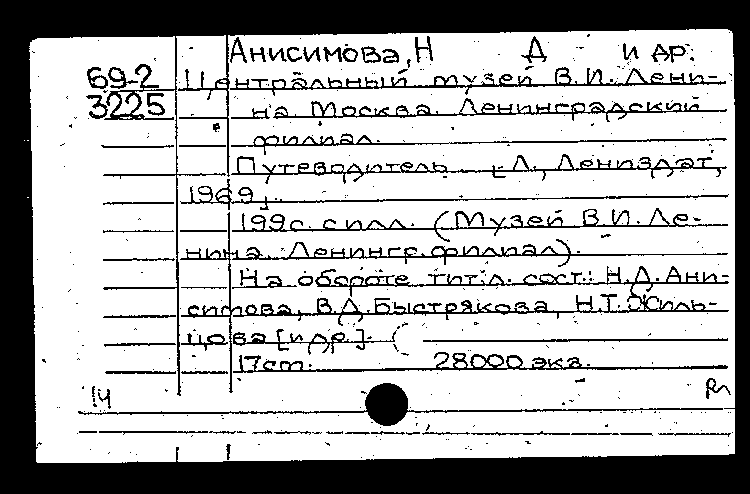 Анисимова, Н Д и др.
69-2 Центральный музей В.И. Лени-
3225 на. Москва. Ленинградский
филиал.
Путеводитель. [Л., Лениздат,
1969].
199с. с илл. (Музей В.И. Ле-
нина. Ленингр. филиал).
На обороте тит. л. сост.: Н.Д. Ани-
симова, В.Д. Быстрякова, Н.Т. Жиль-
цова [и др.].
17см. 28000 экз.
14